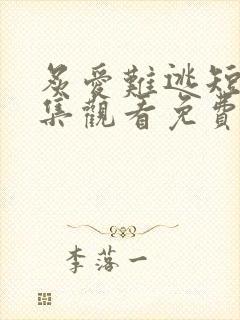 炙愛難逃短
集觀看免費
李落一